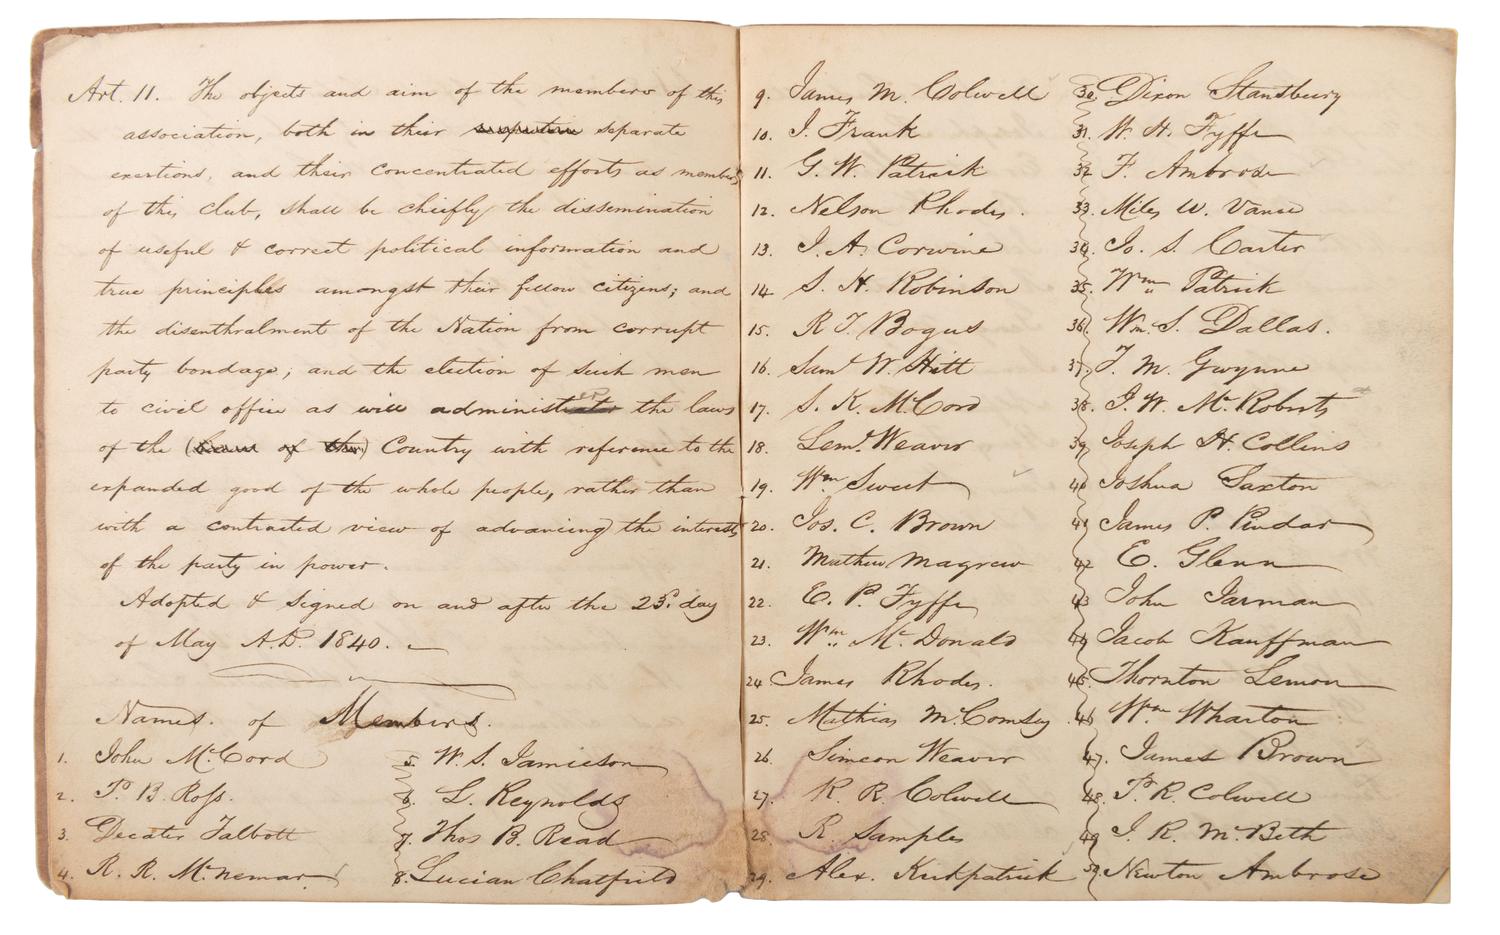 Art. 11. The objects and aim of the members of this
association, both in their separate
exertions, and their concentrated efforts as members
of this club, shall be chiefly the dissemination
of useful & correct political information and
true principles amongst their fellow citizens; and
the disenthralment of the Nation from corrupt
party bondage; and the election of such men
to civil office as will administer the laws
of the (laws of the) Country with reference to the
expanded good of the whole people, rather than
with a contracted view of advancing the interests
of the party in power.
Adopted & signed on and after the 25th day
of May A.D. 1840.
Names of Members.
1. John McCord
2. T. B. Ross.
3. Decater Talbott
4. R. R. McNemar
5. W. S. Jamieson
6. L. Reynolds
7. Thos B. Read
8. Lucian Chatfield
9. James M. Colwell
10. J. Frank
11. G. W. Patrick
12. Nelson Rhodes.
13. J. A. Corwine
14. S. H. Robinson
15. R T. Bogus
16. Saml W. Hitt
17. S. K. McCord
18. Leml Weaver
19. Wm Sweet
20. Jos. C. Brown
21. Mathew Magrew
22. E. P. Fyffe
23. Wm McDonald
24 James Rhodes.
25. Mathias McComsey.
26. Simeon Weaver
27. R. R. Colwell
28. R Samples
29. Alex. Kirkpatrick
30. Dixon Stansbury
31. W. H. Fyffe
32 F. Ambrose
33. Miles W. Vance
34. Jo. S. Carter
35. Wm Patrick
36. Wm. S. Dallas.
37. T. M. Gwynne
38. J. W. McRoberts
39 Joseph H. Collins
40 Joshua Saxton
41 James P. Pindar
42 E. Glenn
43 John Jarman
44 Jacob Kauffman
45. Thornton Lemon
46 Wm Wharton
47. James Brown
48. T. R. Colwell
49 J. R. McBeth
50 Newton Ambrose